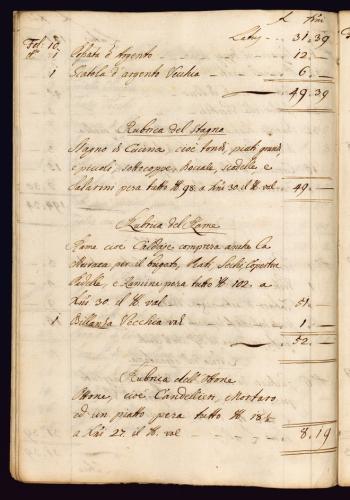 Latus 31. 39
Fol: 10.
N° 1 Posata d'Argento 12. —
1 Scatola d'argento Vechia — 6. —
49. 39
Rubrica del Stagno
Stagno di Cucina, cioè tondi, piati grandi
e piccoli, sottocoppe, Bocale, scodelle e
Salarini pesa tutto lb. 98. a Xni 30. il lb. val 49. —
Rubrica del Rame
Rame cioè Caldaje compresa anche la
murata per il bugato, Ramì, Sechi, Coperchi
Padelle, e Ramina pesa tutto lb. 102. a
Xni 30 il lb. val 51. —
1 Billanza Vecchia val 1. —
52. —
Rubrica dell'Otone
Otone, cioè Candellieri, Mortaro
ed un piatto pesa tutto lb. 18½
a Xni 27. il lb. val 8. 19